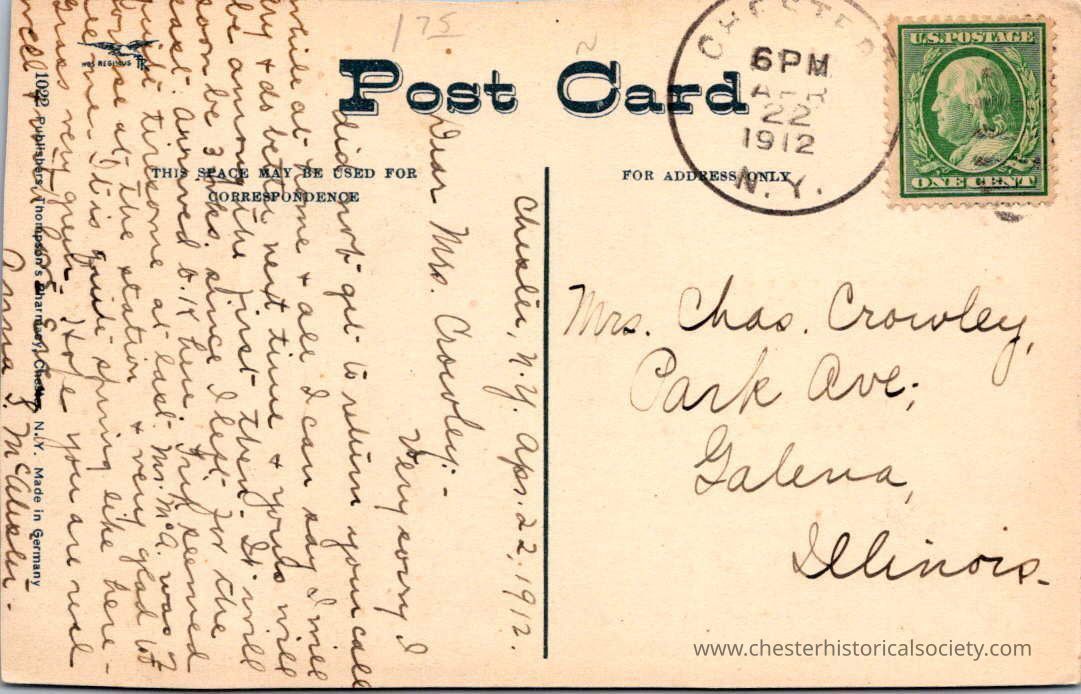 175
2
Post Card
THIS SPACE MAY BE USED FOR
CORRESPONDENCE
FOR ADDRESS ONLY
CHESTER
6PM
APR
22
1912
N.Y.
U.S. POSTAGE
ONE CENT
Mrs. Chas. Crowley,
Park Ave;
Galena,
Illinois.
Chester, N.Y. Apr. 22, 1912.
Dear Mrs. Crowley:-
Very sorry I
did not get to return your call
while at home & all I can say I will
try & do better next time & yours will
be among the first then. It will
soon be 3 wks. since I left for the
east. Arrived o.k. here. Trip seemed
quite tiresome at last. Mr. McA. was
at the station & very glad to
see me. It is quite spring like here-
very much. Hope you are real
well
Anna S. McAlester.
NOS REGIMUS
1022 Publishers, Thompson's Pharmacy, Chester, N.Y. Made in Germany
www.chesterhistoricalsociety.com